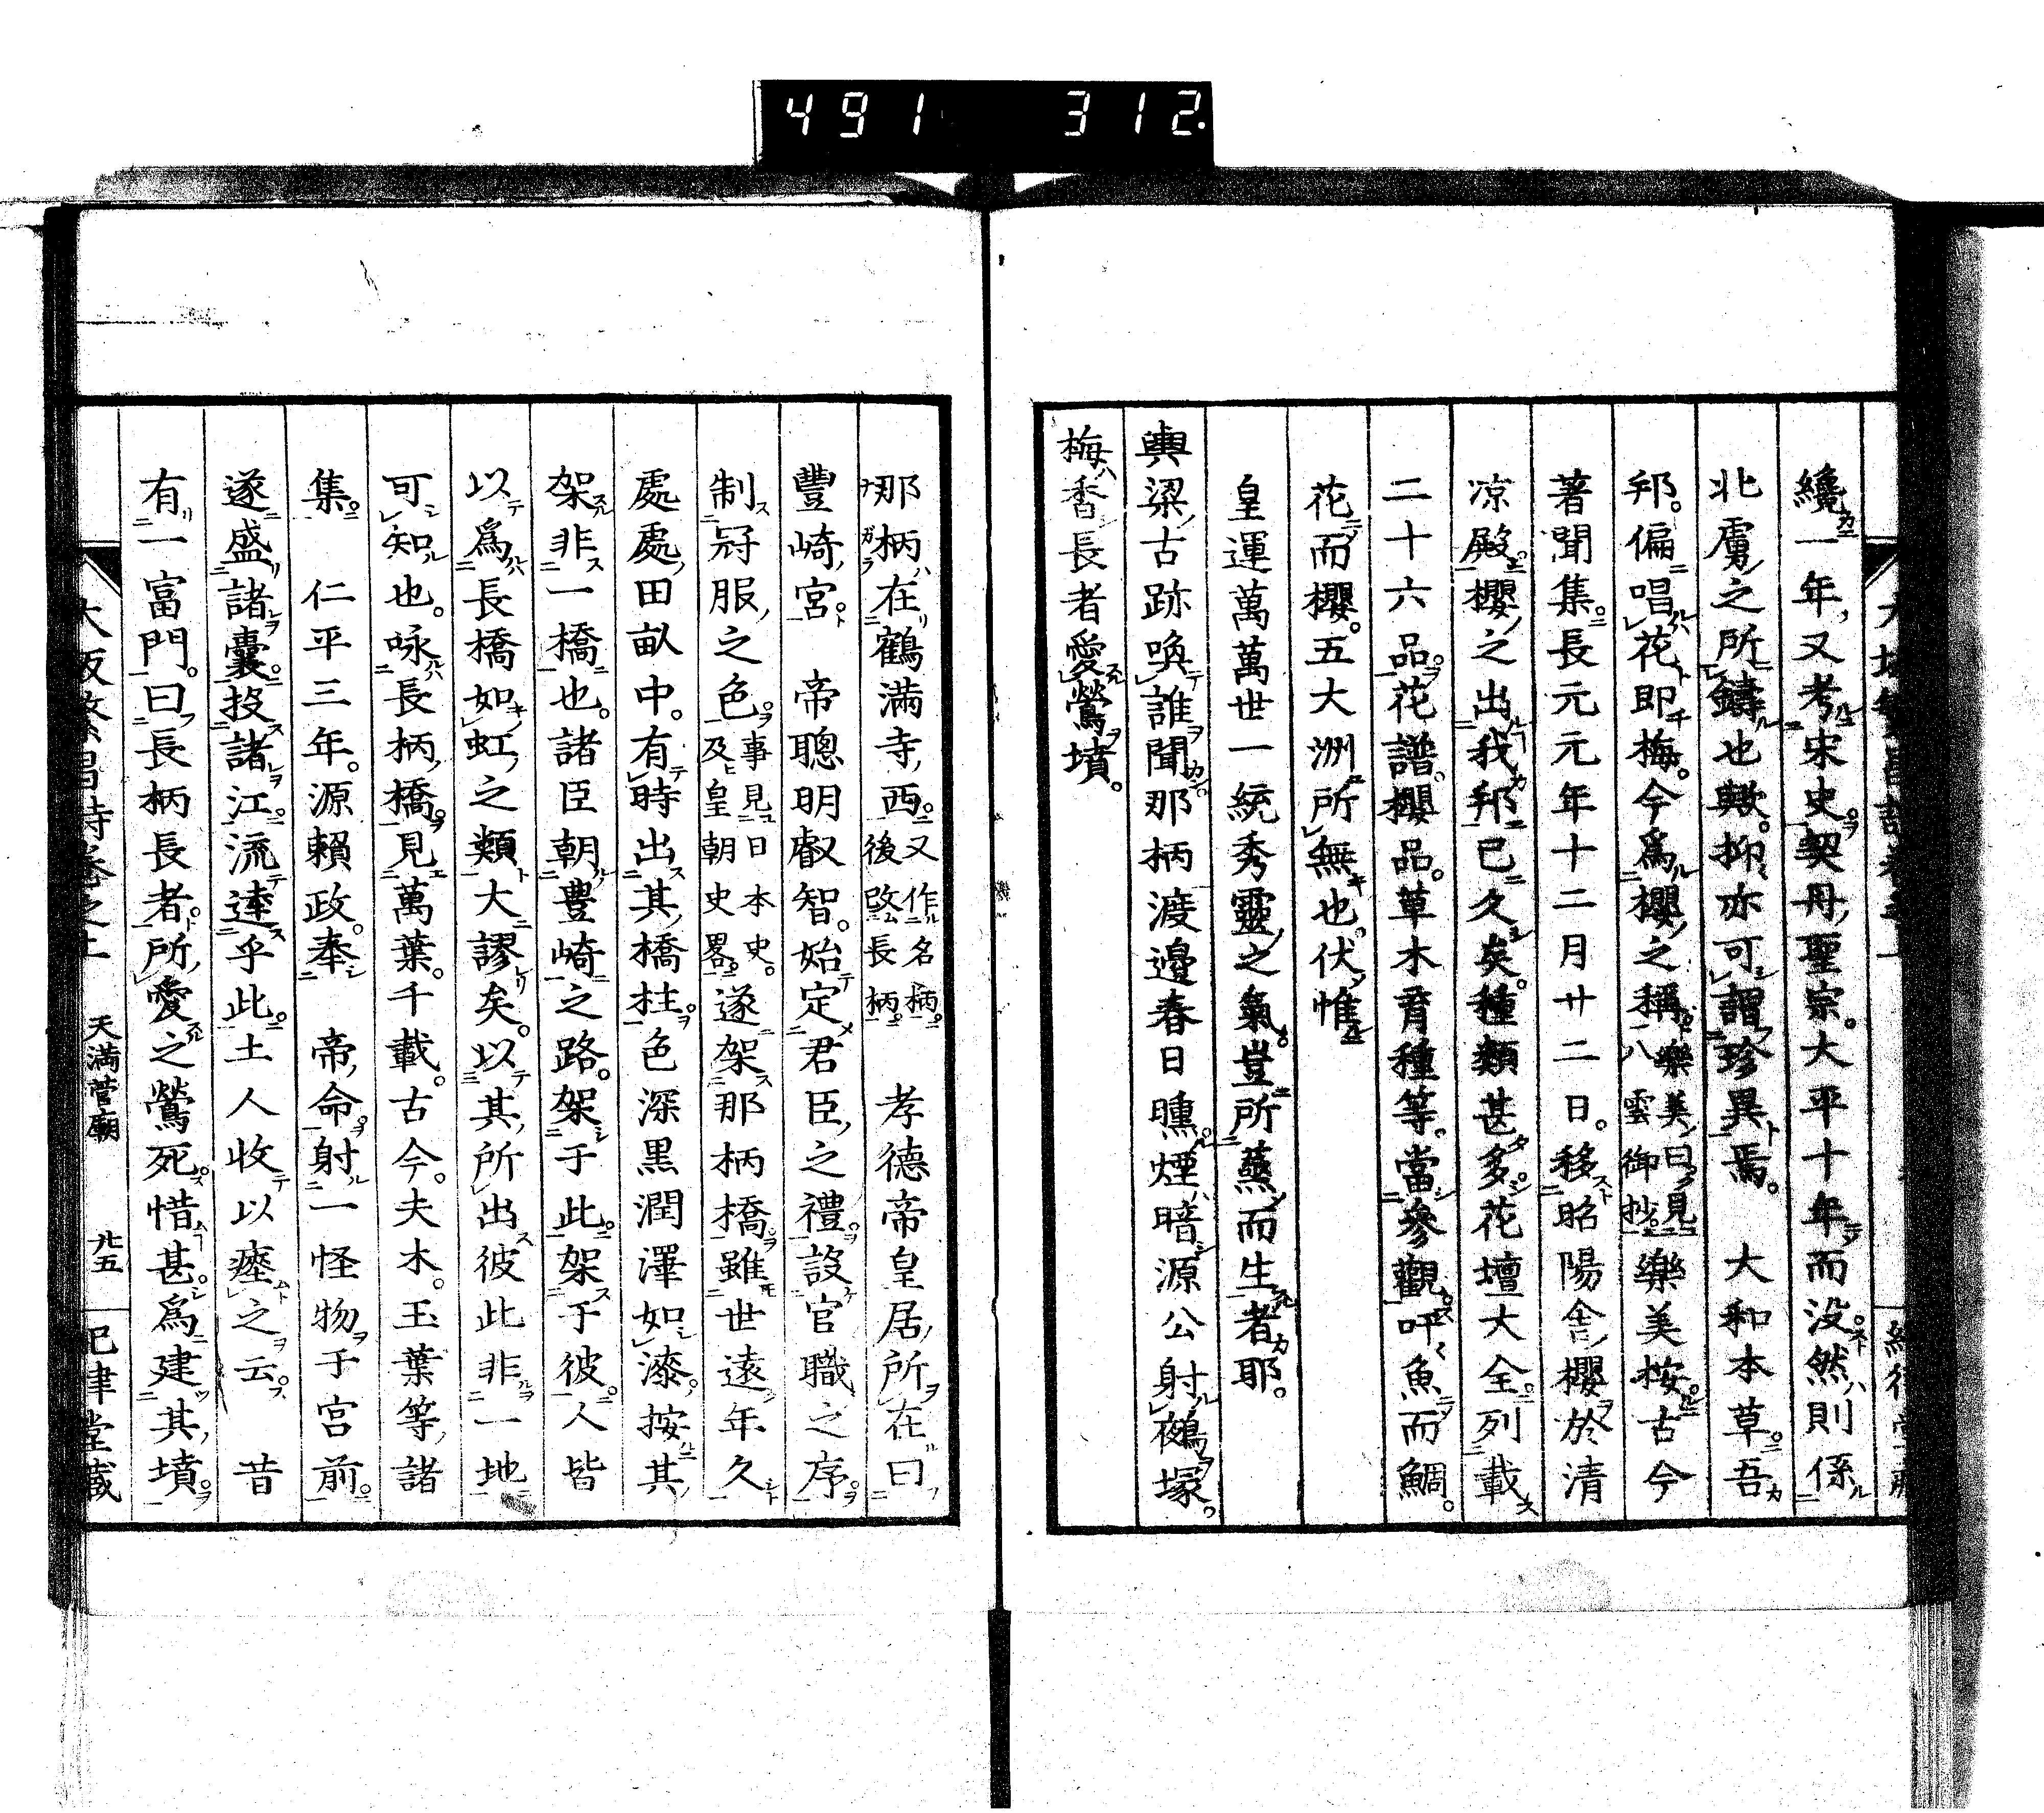 491 312.
纔一年又考宋史契丹聖宗大平十年而没然則係
北虜之所鑄也歟抑亦可謂珍異焉。 大和本草吾
邦。偏唱花即梅。今為櫻之稱樂美曰見八雲御抄樂美按古今
著聞集。長元元年十二月廿二日。移昭陽舎櫻於清
凉殿櫻之出我邦已久矣。種類甚多花壇大全列載
二十六品。花譜櫻品。草木育種等。當參觀吁魚而鯛。
花而櫻。五大洲所無也。伏惟
皇運萬萬世一統秀靈之氣。豈所蒸而生者耶。
輿梁古跡喚誰聞那柄渡邉春日曛煙暗源公射鵺塚。
梅香長者愛鶯墳。
那柄在鶴満寺西又作名柄後改長柄 孝德帝皇居所在曰
豐崎宮 帝聰明叡智。始定君臣之禮設官職之序
制冠服之色。事見日本史。及皇朝史畧。遂架那柄橋雖世遠年久
處處田畝中。有時出其橋柱。色深黒潤澤如漆按其
架非一橋也。諸臣朝豊崎之路。架于此。架于彼。人皆
以為長橋如虹之類大謬矣。以其所出彼此非一地
可知也。咏長柄橋。見萬葉。千載。古今。夫木。玉葉等諸
集。 仁平三年。源頼政。奉 帝命。射一怪物于宮前。
遂盛諸囊。投諸江。流達乎此。土人收以瘞之云。 昔
有一富門。曰長柄長者。所愛之鶯死。惜甚。為建其墳。
大阪繁昌詩卷之上 天満菅廟 廿五 堂藏